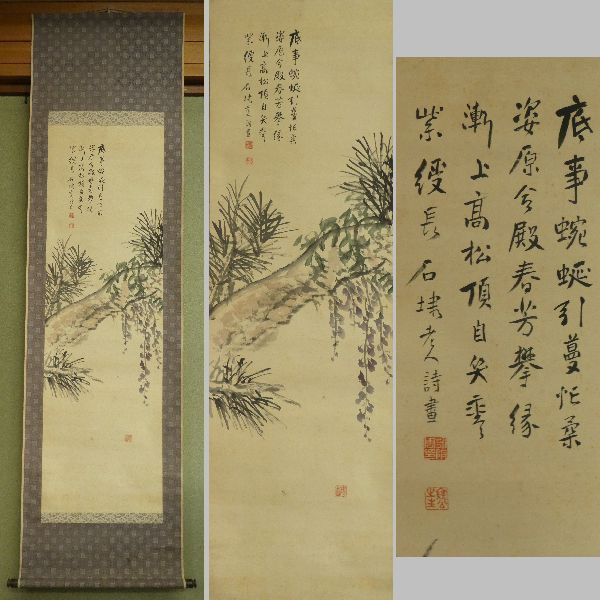 底事蜿蜒引蔓忙柔
姿原合殿春芳攀縁
漸上高松頂自矢垂
紫綬長 石埭老人詩畫